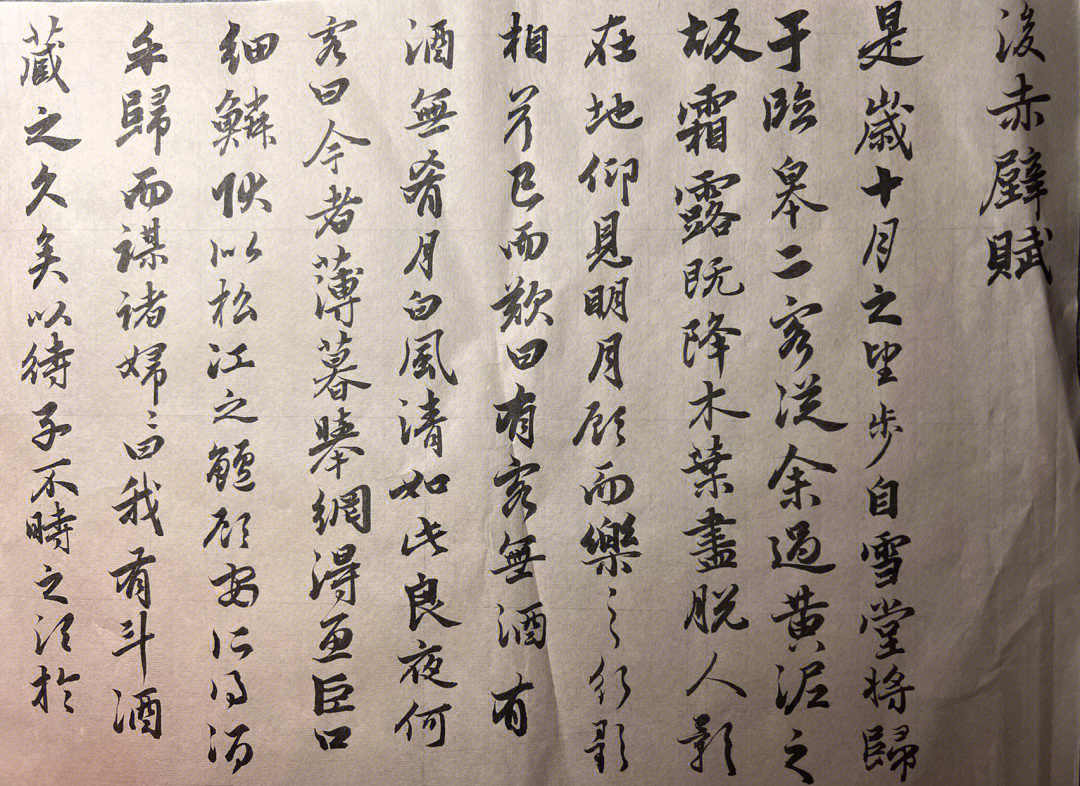 後赤壁賦
是歲十月之望步自雪堂將歸
于臨皋二客從余過黃泥之
坂霜露既降木葉盡脫人影
在地仰見明月顧而樂之行歌
相答已而歎曰有客無酒有
酒無肴月白風清如此良夜何
客曰今者薄暮舉網得魚巨口
細鱗狀似松江之鱸顧安所得酒
乎歸而謀諸婦〻曰我有斗酒
藏之久矣以待子不時之須於